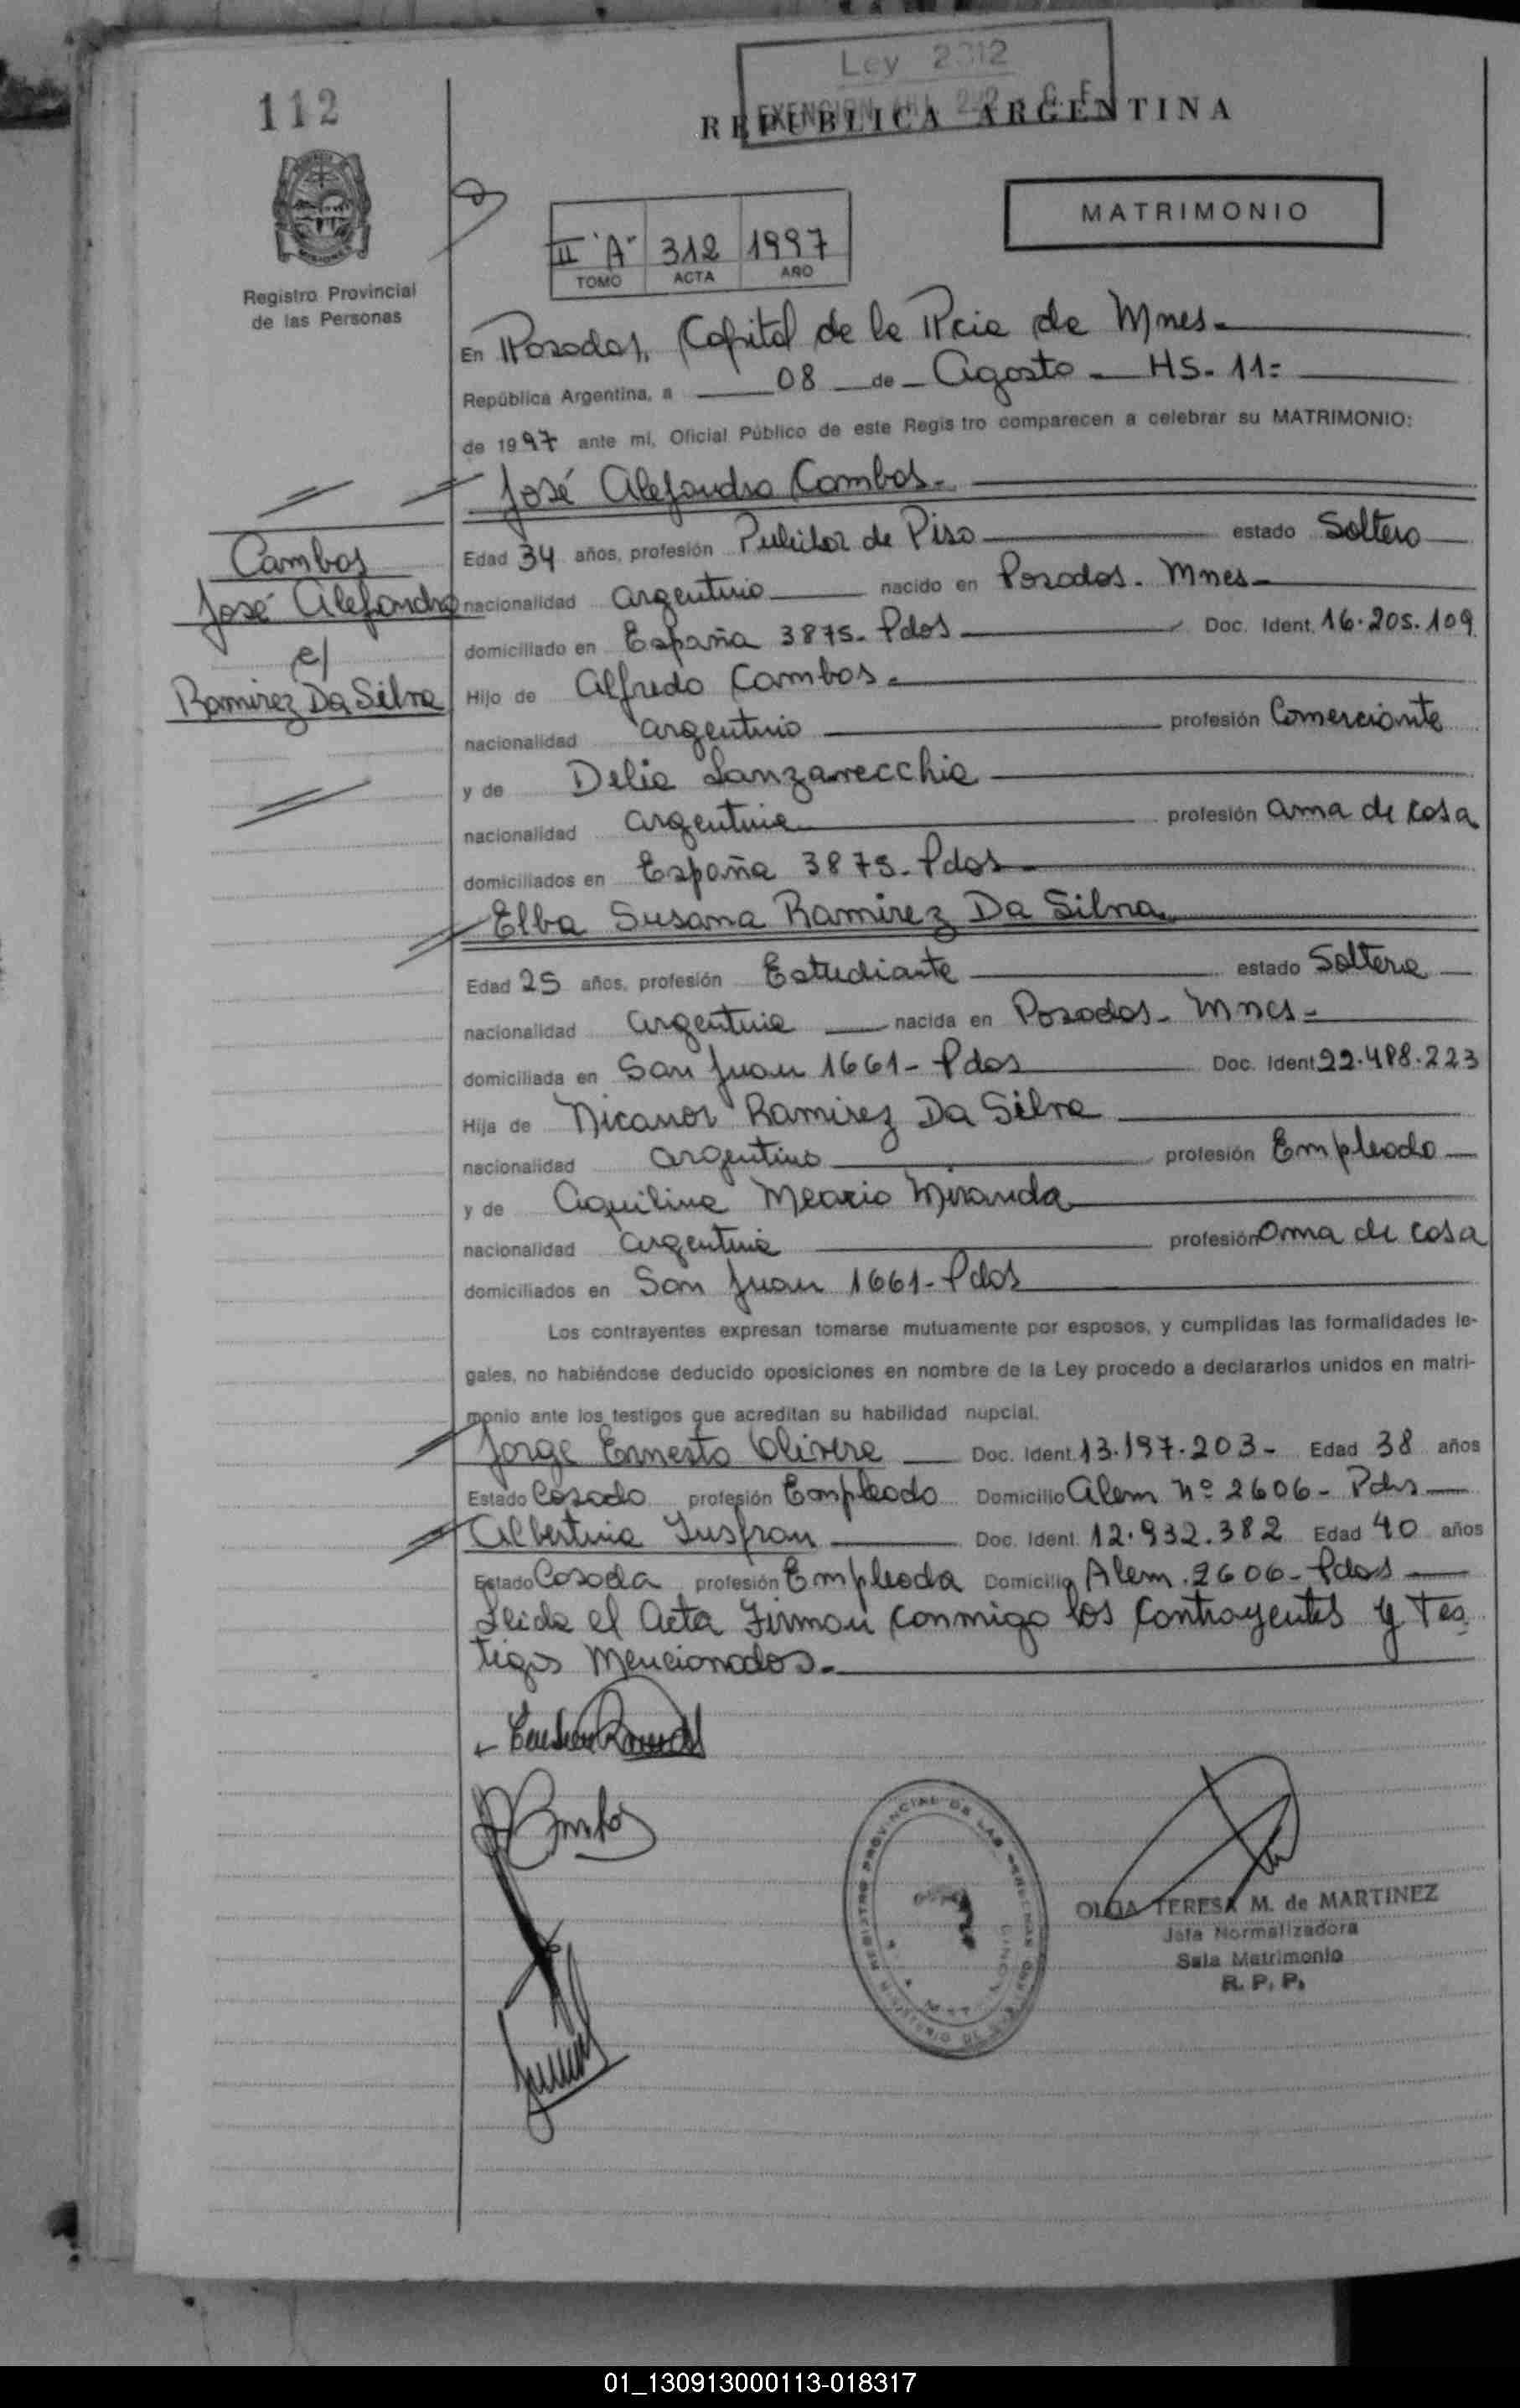 Ley 2312
EXENCION Art. 222 C. F.
112
REPUBLICA ARGENTINA
MATRIMONIO
II "A" 312 1997
TOMO ACTA AÑO
Registro Provincial
de las Personas
En Posadas, Capital de la Pcia de Mnes.
República Argentina, a 08 de Agosto - HS. 11:
de 1997 ante mi, Oficial Público de este Registro comparecen a celebrar su MATRIMONIO:
José Alejandro Cambos.
Cambos
José Alejandro
c/
Ramirez Da Silva
Edad 34 años, profesión Pulidor de Piso estado Soltero
nacionalidad argentino nacido en Posadas. Mnes
domiciliado en España 3875. Pdas Doc. Ident. 16.205.109
Hijo de Alfredo Cambos.
nacionalidad argentino profesión Comerciante
y de Delia Lanzavecchia
nacionalidad argentina profesión ama de casa
domiciliados en España 3875. Pdas
Elba Susana Ramirez Da Silva
Edad 25 años, profesión Estudiante estado Soltera
nacionalidad argentina nacida en Posadas. Mnes
domiciliada en San Juan 1661- Pdas Doc. Ident 22.488.223
Hija de Nicanor Ramirez Da Silva
nacionalidad argentino profesión Empleado
y de Aquilina Meario Miranda
nacionalidad argentina profesión Ama de casa
domiciliados en San Juan 1661- Pdas
Los contrayentes expresan tomarse mutuamente por esposos, y cumplidas las formalidades le-
gales, no habiéndose deducido oposiciones en nombre de la Ley procedo a declararlos unidos en matri-
monio ante los testigos que acreditan su habilidad nupcial.
Jorge Ernesto Olivera Doc. Ident. 13.197.203- Edad 38 años
Estado Casado profesión Empleado Domicilio Alem nº 2606- Pdas
Albertina Insfran Doc. Ident. 12.932.382 Edad 40 años
Estado Casada profesión Empleada Domicilio Alem 2606- Pdas
Leida el Acta Firman conmigo los contrayentes y Tes
tigos Mencionados.
REGISTRO PROVINCIAL DE LAS PERSONAS
OLGA TERESA M. de MARTINEZ
Jefa Normalizadora
Sala Matrimonio
R. P. P.
01_130913000113-018317